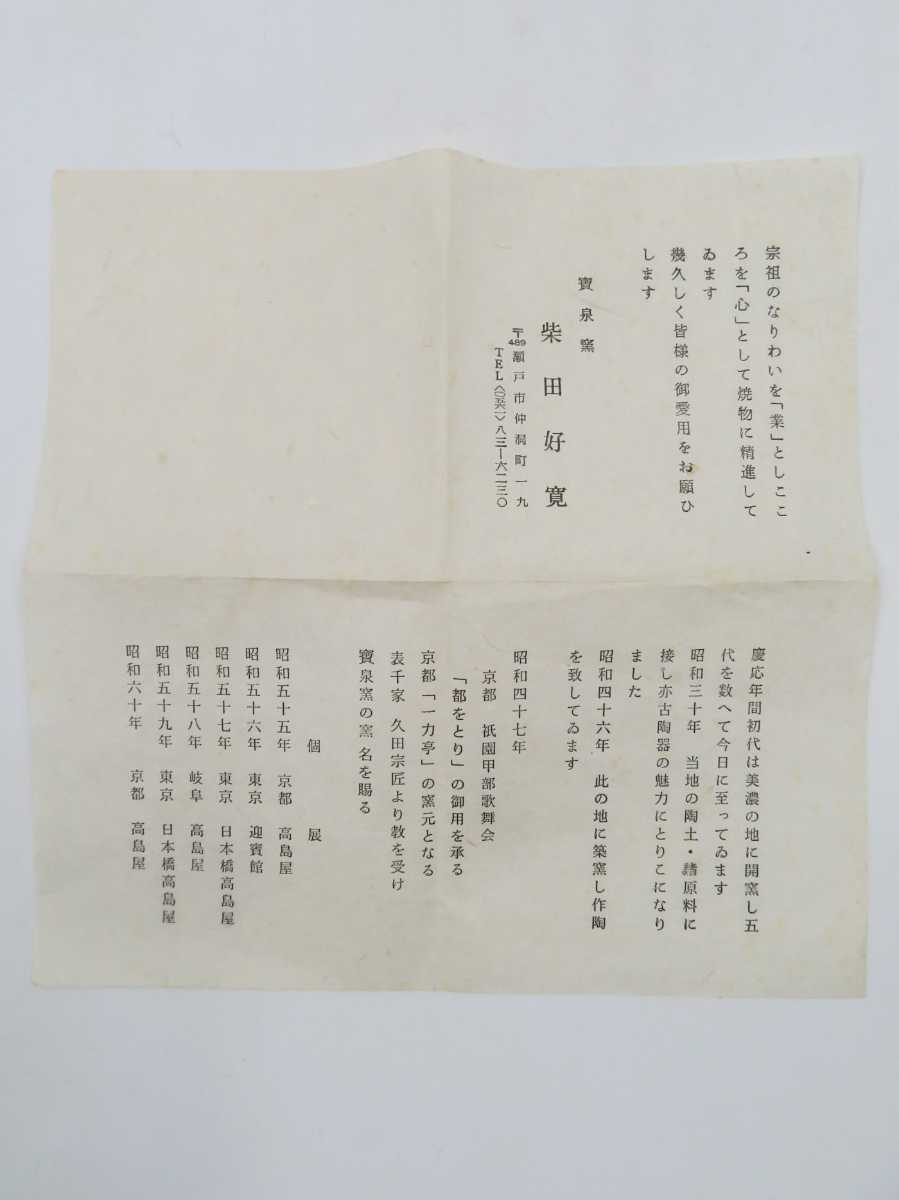 宗祖のなりわいを「業」としここ
ろを「心」として焼物に精進して
ゐます
幾久しく皆様の御愛用をお願ひ
します
寶泉窯
柴田好寛
〒489 瀬戸市仲洞町一九
TEL〈〇五六一〉八三ー六二三〇
慶応年間初代は美濃の地に開窯し五
代を数へて今日に至ってゐます
昭和三十年　当地の陶土・諸原料に
接し亦古陶器の魅力にとりこになり
ました
昭和四十六年　此の地に築窯し作陶
を致してゐます
昭和四十七年
京都　祇園甲部歌舞会
「都をとり」の御用を承る
京都「一力亭」の窯元となる
表千家　久田宗匠より教を受け
寶泉窯の窯名を賜る
個展
昭和五十五年　京都　高島屋
昭和五十六年　東京　迎賓館
昭和五十七年　東京　日本橋高島屋
昭和五十八年　岐阜　高島屋
昭和五十九年　東京　日本橋高島屋
昭和六十年　京都　高島屋